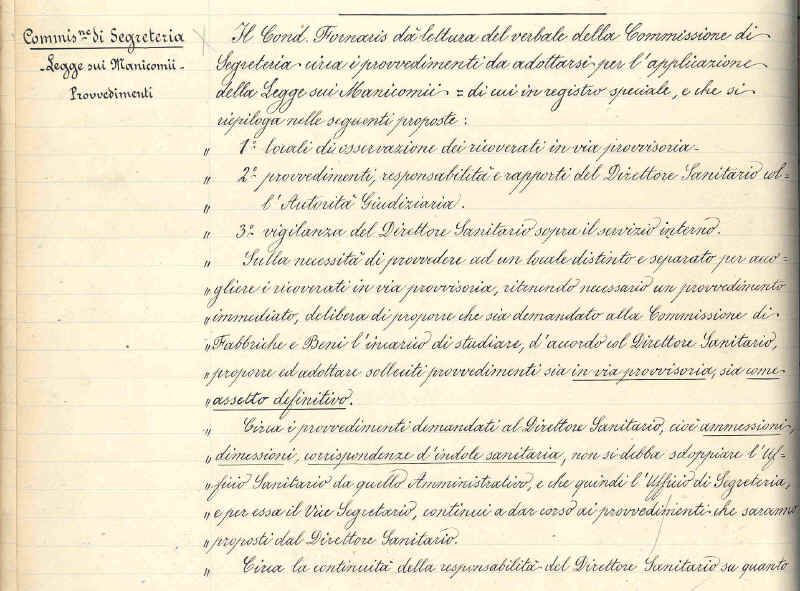 Commis.ne di Segreteria
Legge sui Manicomii -
Provvedimenti
Il Cond. Fornaris dà lettura del verbale della Commissione di
Segreteria circa i provvedimenti da adottarsi per l'applicazione
della Legge sui Manicomii = di cui in registro speciale, e che si
riepiloga nelle seguenti proposte:
" 1º locali di osservazione dei ricoverati in via provvisoria -
" 2º provvedimenti, responsabilità e rapporti del Direttore Sanitario col=
" l'Autorità Giudiziaria.
" 3º vigilanza del Direttore Sanitario sopra il servizio interno.
" Sulla necessità di provvedere ad un locale distinto e separato per acco=
" gliere i ricoverati in via provvisoria, ritenendo necessario un provvedimento
" immediato, delibera di proporre che sia demandato alla Commissione di
" Fabbriche e Beni l'incarico di studiare, d'accordo col Direttore Sanitario,
" proporre ed adottare solleciti provvedimenti sia in via provvisoria, sia come
" assetto definitivo.
" Circa i provvedimenti demandati al Direttore Sanitario, cioè ammessioni,
" dimessioni, corrispondenze d'indole sanitaria, non si debba sdoppiare l'Uf=
" ficio Sanitario da quello Amministrativo, e che quindi l'Ufficio di Segreteria,
" e per essa il Vice Segretario, continui a dar corso ai provvedimenti che saranno
" proposti dal Direttore Sanitario.
" Circa la continuità della responsabilità del Direttore Sanitario su quanto